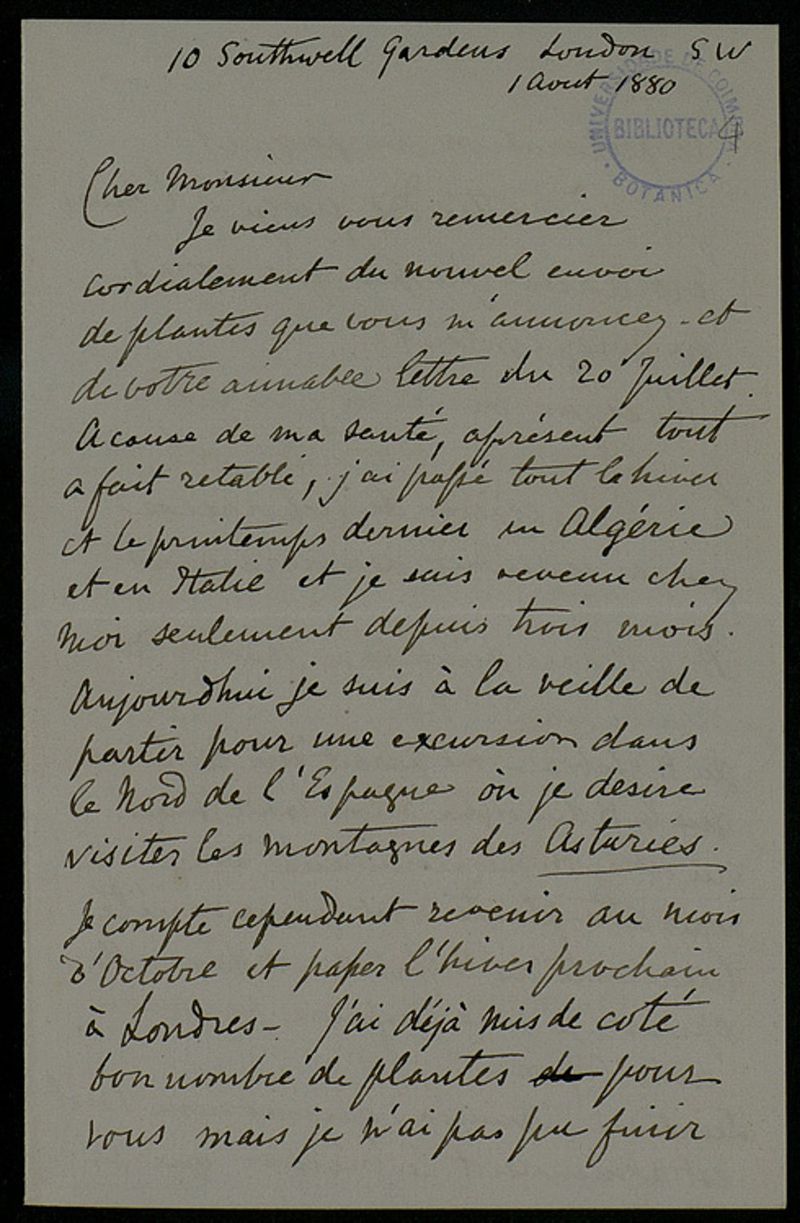 10 Southwell Gardens London SW
1 Aout 1880
UNIVERSIDADE DE COIMBRA
BIBLIOTECA
BOTANICA
4
Cher Monsieur
Je viens vous remercier
cordialement du nouvel envoi
de plantes que vous m'annoncez - et
de votre aimable lettre du 20 Juillet.
A cause de ma santé, aprésent tout
a fait retabli, j'ai passé tout le hiver
et le printemps dernier en Algérie
et en Italie et je suis revenu chez
moi seulement depuis trois mois.
Aujourdhui je suis à la veille de
partir pour une excursion dans
le Nord de l'Espagne où je desire
visiter les montagnes des Asturies.
Je compte cependant revenir au mois
d'Octobre et passer l'hiver prochain
à Londres - J'ai déjà mis de coté
bon nombre de plantes de pour
vous mais je n'ai pas pu finir